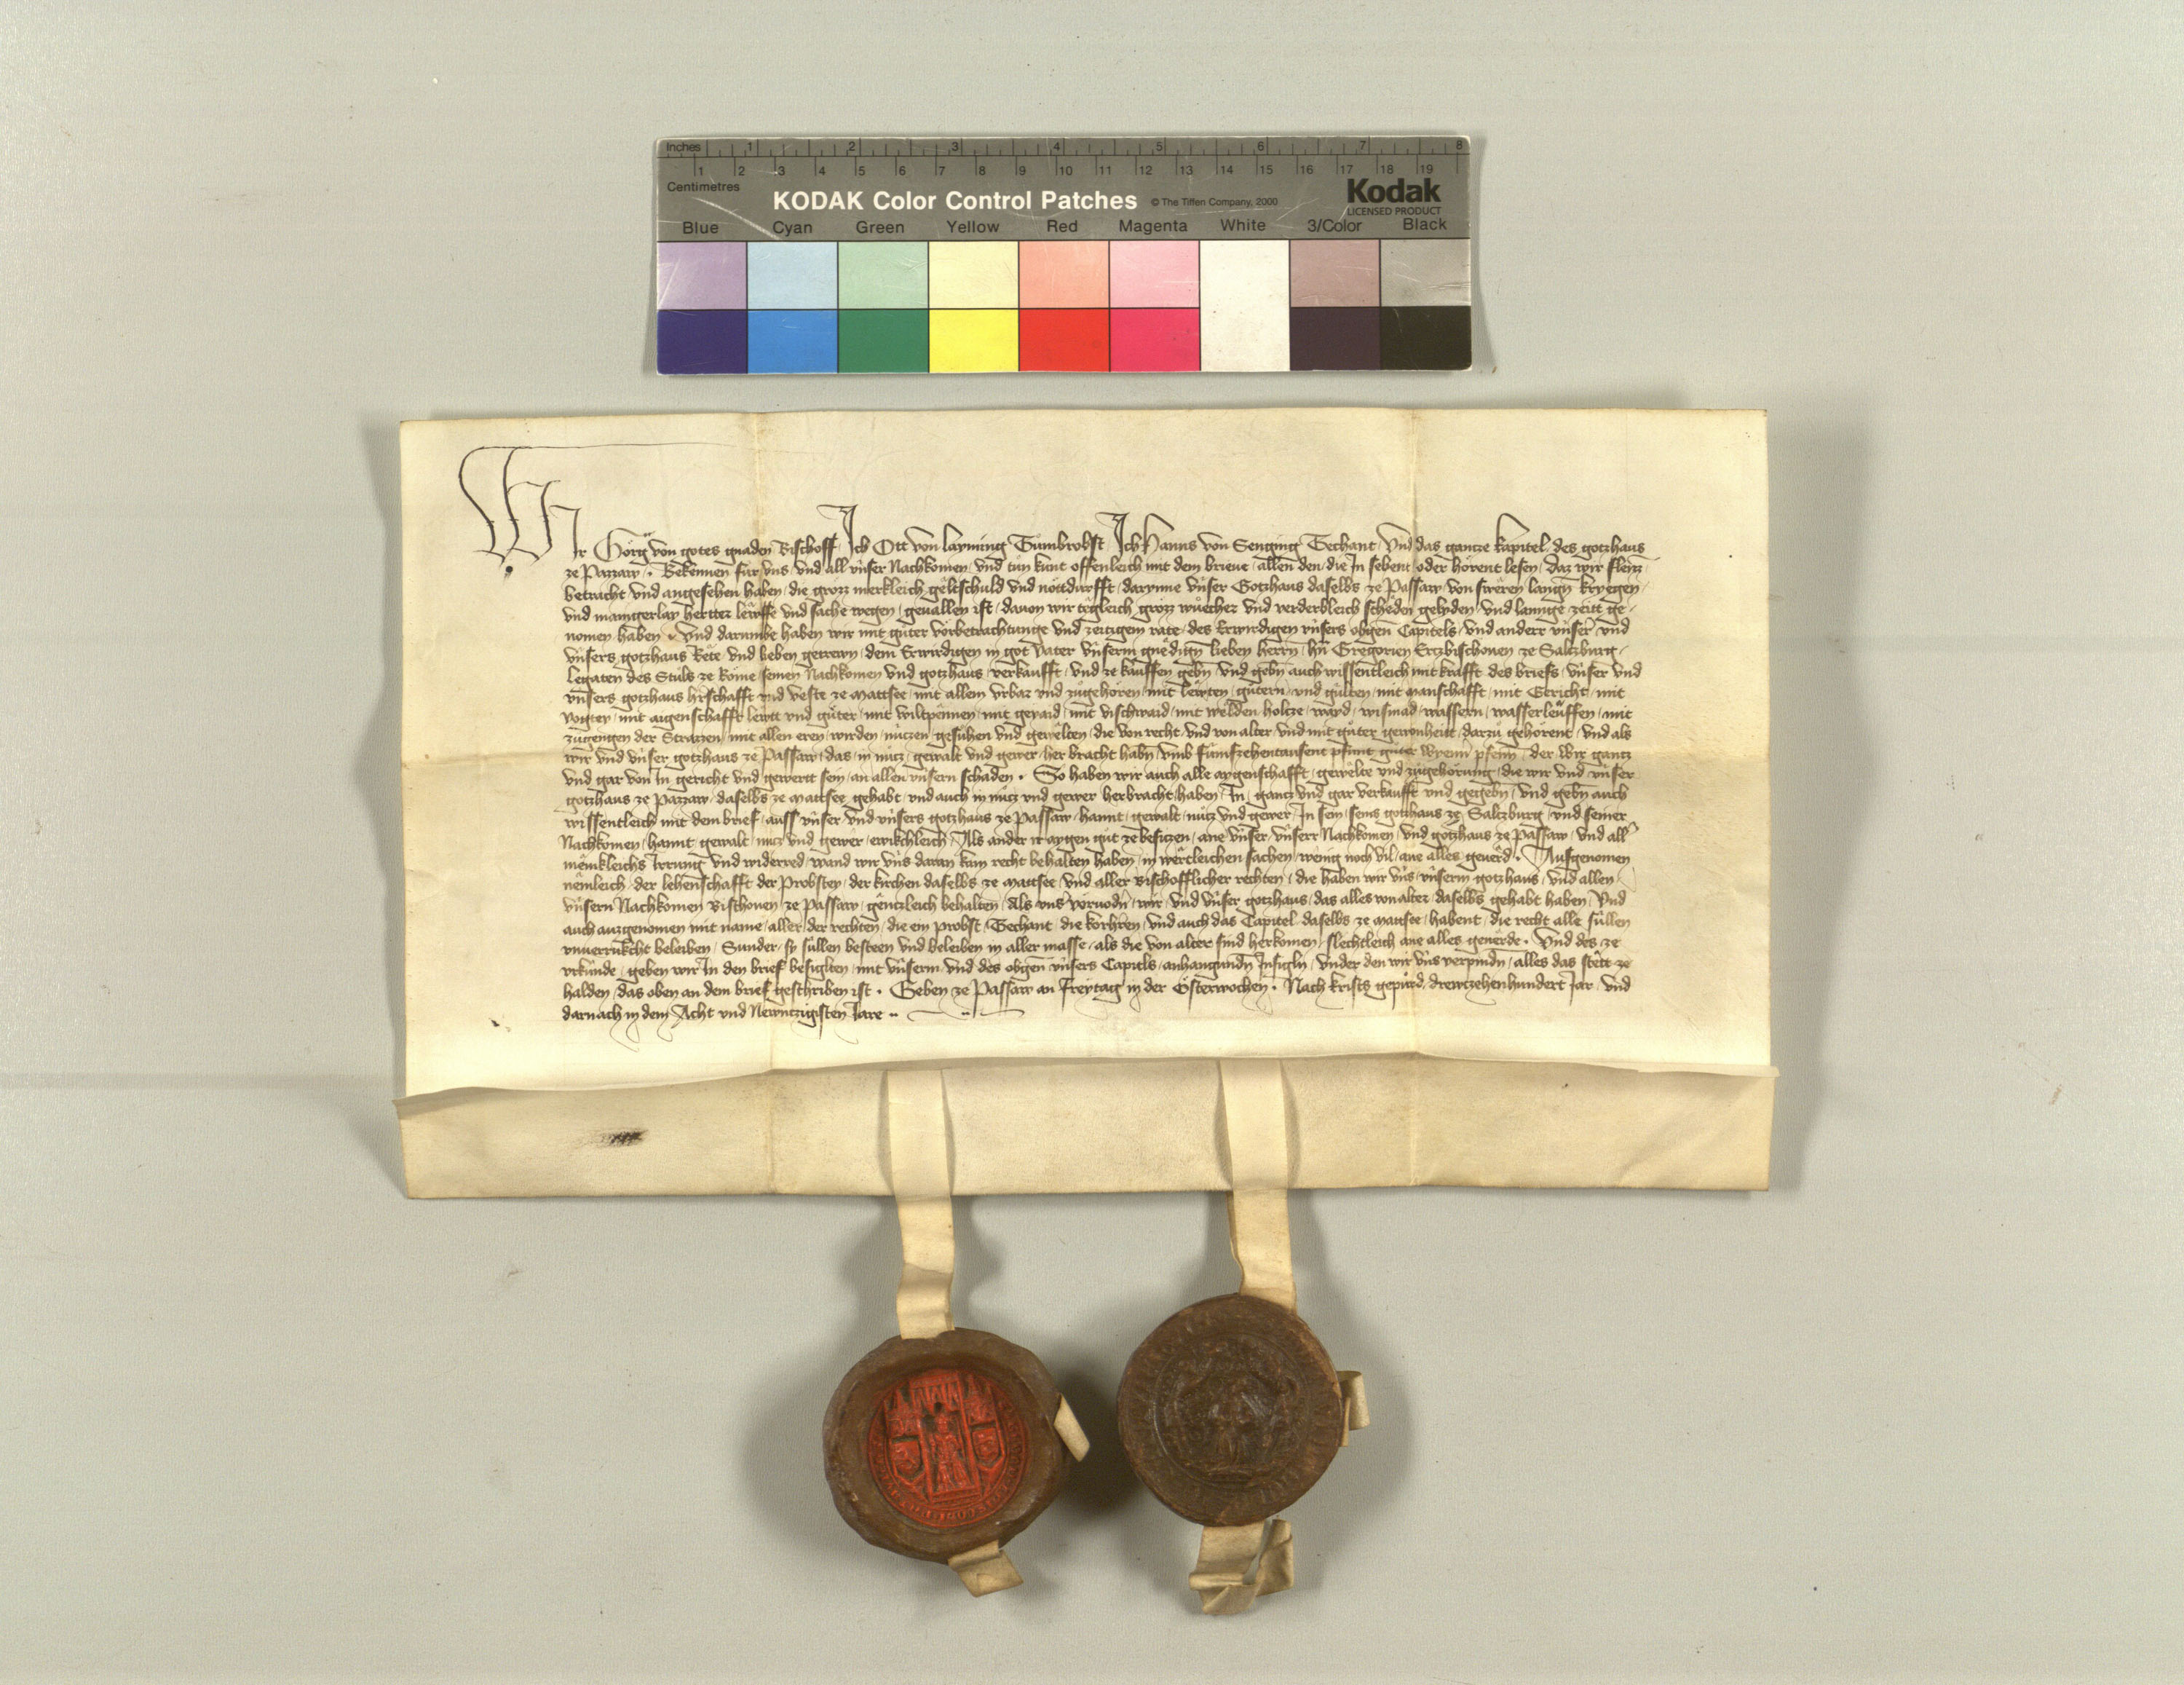 Inches 1 2 3 4 5 6 7 8
1 2 3 4 5 6 7 8 9 10 11 12 13 14 15 16 17 18 19
Centimetres
KODAK Color Control Patches © The Tiffen Company, 2000 Kodak
LICENSED PRODUCT
Blue Cyan Green Yellow Red Magenta White 3/Color Black
Wir Görg von gotes gnaden Bischoff Ich Ott von Layming Tůmbrobst Ich Hanns von Senging Techant Vnd das gancze kapitel des gotzhaus
ze Pazzaw. Bekennen für vns vnd all vnser Nachkomen vnd tůn kunt offenleich mit dem brieue allen den die In sehent oder hörent lesen daz wir
betracht vnd angesehen haben die grozz merkleich geltschuld vnd notdurfft darynne vnser Gotzhaus daselbs ze Passaw von swêren langen kryegen
vnd manigerlay hertter lewffe vnd sache wegen geuallen ist dauon wir tegleich grozz wůcher vnd verderbleich schêden gelyden vnd lannge zeitt ge-
nomen haben Vnd darumbe haben wir mit gůter vorbetrachtunge vnd zeitigem rate des Erwirdigen vnsers obgen Capitels vnd anderr vnser vnd
vnsers gotzhaus Rête vnd lieben getrewn dem Erwirdigen in got Vater vnserm gnêdign lieben herrn hn Gregorien Ertzbischouen ze Saltzburg
Legaten des Stuls ze Rome seinen Nachkomen vnd gotzhaus verkaufft vnd ze kauffen gebn vnd gebn auch wissentleich mit krafft des briefs vnser vnd
vnsers gotzhaus hrschafft vnd veste ze Mattsee mit allem vrbar vnd zůgehören mit lewten gůtern vnd gülten mit manschafft mit Gericht mit
Vogtey mit aigenschafft lewtt vnd gůter mit wiltpennen mit geiaid mit vischwaid mit welden holtze wayd wismad wassern wasserleuffen mit
zugengen der Strazzen mit allen eren wirden nutzen gesůhen vnd gewelten die von recht vnd von alter vnd mit gůter gewonheitt darzů gehörent vnd als
wir vnd vnser gotzhaus ze Passaw das in nutz gewalt vnd gewer her bracht habn vmb fümfzehentausent pfunt gůter Wyenn pfenn der wir gantz
vnd gar von In gericht vnd gewert sein an allen vnsern schaden. So haben wir auch alle aygenschafft gewelte vnd zůgehörung die wir vnd vnser
gotzhaus ze Pazzaw daselbs ze Mattsee gehabt vnd auch in nutz vnd gewer herbracht haben In gantz vnd gar verkaufft vnd gegebn vnd gebn auch
wissentleich mit dem brief auss vnser vnd vnsers gotzhaus ze Passaw hannt gewalt nutz vnd gewer In sein seins gotzhaus ze Saltzburg vnd seiner
Nachkomen hannt gewalt nutz vnd gewer ewikchleich Als ander ir aygen gůt ze besitzen ane vnser vnserr Nachkomen vnd gotzhaus ze Passaw vnd all
menikleichs Irrung vnd widerred wand wir vns daran kain recht behalten haben in wertleichen sachen wenig noch vil ane alles geuerd. Ausgenomen
nemleich der lehenschafft der Probstey der kirchen daselbs ze Mattsee vnd aller Bischofflicher rechten die haben wir vns vnserm gotzhaus vnd allen
vnsern Nachkomen Bischouen ze Passaw gentzleich behalten Als vnser voruodn wir vnd vnser gotzhaus das alles von alter daselbs gehabt haben Vnd
auch auzgenomen mit name aller der rechten die ein Probst Techant die korhren vnd auch das Capitel daselbs ze Mattsee habent die recht alle süllen
vnuerrukcht beleiben Sunder sy süllen besteen vnd beleiben in aller masse als die von alter sind herkomen slechtleich ane alles geuerde. Vnd des ze
vrkunde geben wir In den brief besigelten mit vnserm vnd des obgen vnsers Capitls anhangunden Insigln vnder den wir vns verpindn alles das stett ze
halden das oben an dem brief geschriben ist. Geben ze Passaw an Freytag in der Osterwochen. Nach krists gepurd drewtzehenhundert Jar vnd
darnach in dem Acht vnd Newntzigisten Jare